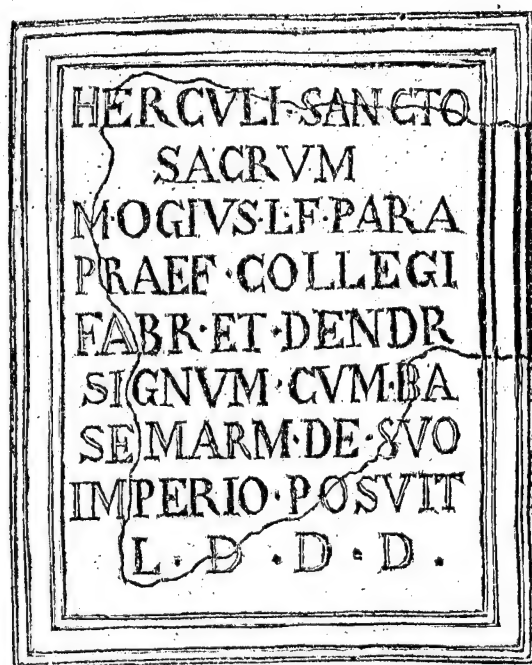 HERCVLI·SANCTO
SACRVM
M·OGIVS·L·F·PARA
PRAEF·COLLEGI
FABR·ET·DENDR
SIGNVM·CVM·BA
SE MARM·DE·SVO
IMPERIO·POSVIT
L·D·D·D·